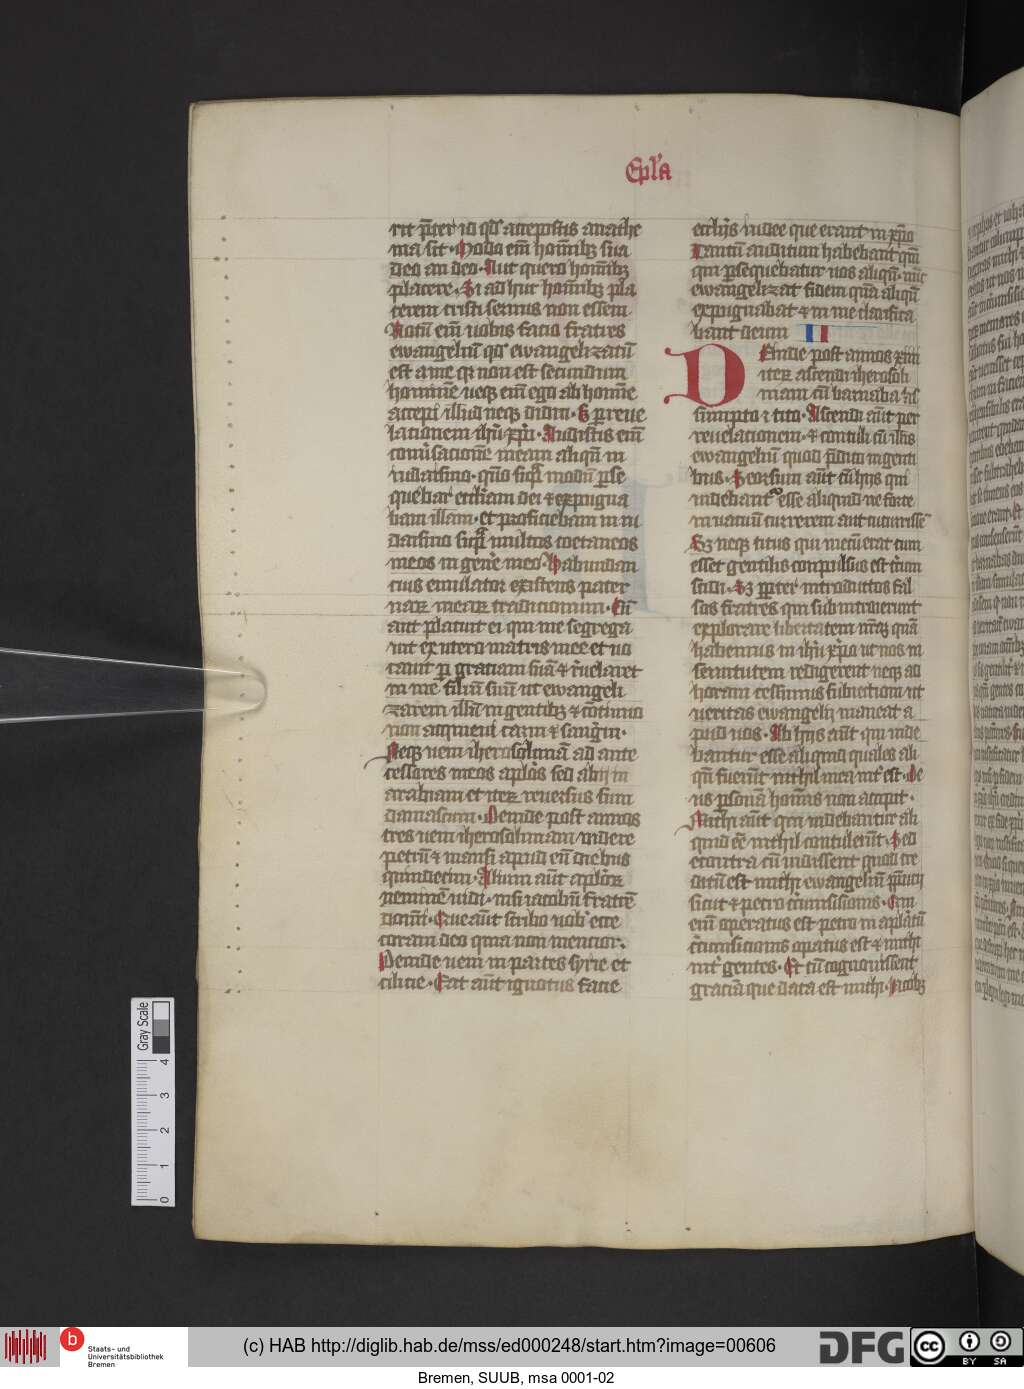 Epl'a
rit p̄ter id qd' accepistis anathe
ma sit · Modo em̄ hoīnibꝫ sua
deo an deo · Aut quero hoīnibꝫ
placere · Si ad huc hoīnibꝫ pla
cerem cristi seruus non essem
Notū em̄ uobis facio fratres
ewangeliū qd' ewangelizatū
est a me qꝛ non est secundum
hominē neqꝫ em̄ ego ab homīe
accepi illud neqꝫ didici · S ꝑ reue
lationem ih̄u xp̄i · Audistis em̄
conuˀsacionē meam aliqn̄ in
iudaismo · qūo supͣ modū ꝑse
quebar eccl'iam dei ⁊ expugna
bam illam · et proficiebam in iu
daismo supͣ multos coetaneos
meos in genˀe meo · habundan
cius emulator existens pater
naꝝ meaꝝ traditionum · Cū
aut̄ placuit ei qui me segrega
uit ex utero matris mee et uo
cauit ꝑ graciam suā ⁊ rˀuelaret
in me filiū suū ut ewangeli
zarem illū in gentibꝫ ⁊ cōtinuo
non acquieui carni ⁊ sangˀni ·
Neqꝫ ueni iherosolimā ad ante
cessores meos ap'los sed abii in
arabiam et iteꝝ reuersus sum
damascum · Deinde post annos
tres ueni iherosolimam uidere
petrū ⁊ mansi apud eū diebus
quindecim · Alium aut̄ ap'loꝝ
neminē uidi · nisi iacobū fratrē
domī · Que aut̄ scribo uob' ecce
coram deo quia non mencior ·
Deinde ueni in partes syrie et
cilicie · Erat aut̄ ignotus facie
eccl'ijs iudee que erant in xp̄o
Tantū auditum habebant qm̄
qui ꝑsequebatur uos aliqn̄ · nūc
ewangelizat fidem quā aliqn̄
expugnabat ⁊ in me clarifica
bant deum II
Deinde post annos xiiii
iteꝝ ascendi iherosoli
mam cū barnaba as
sumpto ⁊ tito · Ascendi aut̄ ꝑer
reuelacionem · ⁊ contuli cū illis
ewangeliū quod p̄dico in genti
bus · Seorsum aut̄ cū hijs qui
uidebantˀ esse aliquid ne forte
in uacuū currerem aut cucurisse
Sꝫ neqꝫ titus qui mecū erat cum
esset gentilis conpulsus est cˀcum
scidi · Sꝫ ꝓpter introductos fal
sos fratres qui subintroierunt
explorare libertatem nr̄aꝫ quā
habemus in ih̄u xp̄o ut nos in
seruitutem redigerent neqꝫ ad
horam cessimus subiectioni ut
ueritas ewangelij maneat a
pud uos · Ab hijs aut̄ qui uide
bantur esse aliquid quales ali
qn̄ fuerūt nichil mea intˀest · De
us ꝑsonā homīs non accipit ·
Michi aut̄ qui uidebantur ali
quid eē nichil contulerūt · Sed
econtra cū uidissent quod cre
ditū est michi ewangeliū p̄pucij
sicut ⁊ petro cˀcumsisionis · Qui
enī operatus est petro in ap'latū
cˀcumsicionis opatus est ⁊ michi
intˀ gentes · Et cū cognouissent
graciā que data est michi · Iacobꝫ
Gray Scale
0 1 2 3 4
b Staats- und
Universitätsbibliothek
Bremen
(c) HAB http://diglib.hab.de/mss/ed000248/start.htm?image=00606
DFG
cc BY SA
Bremen, SUUB, msa 0001-02